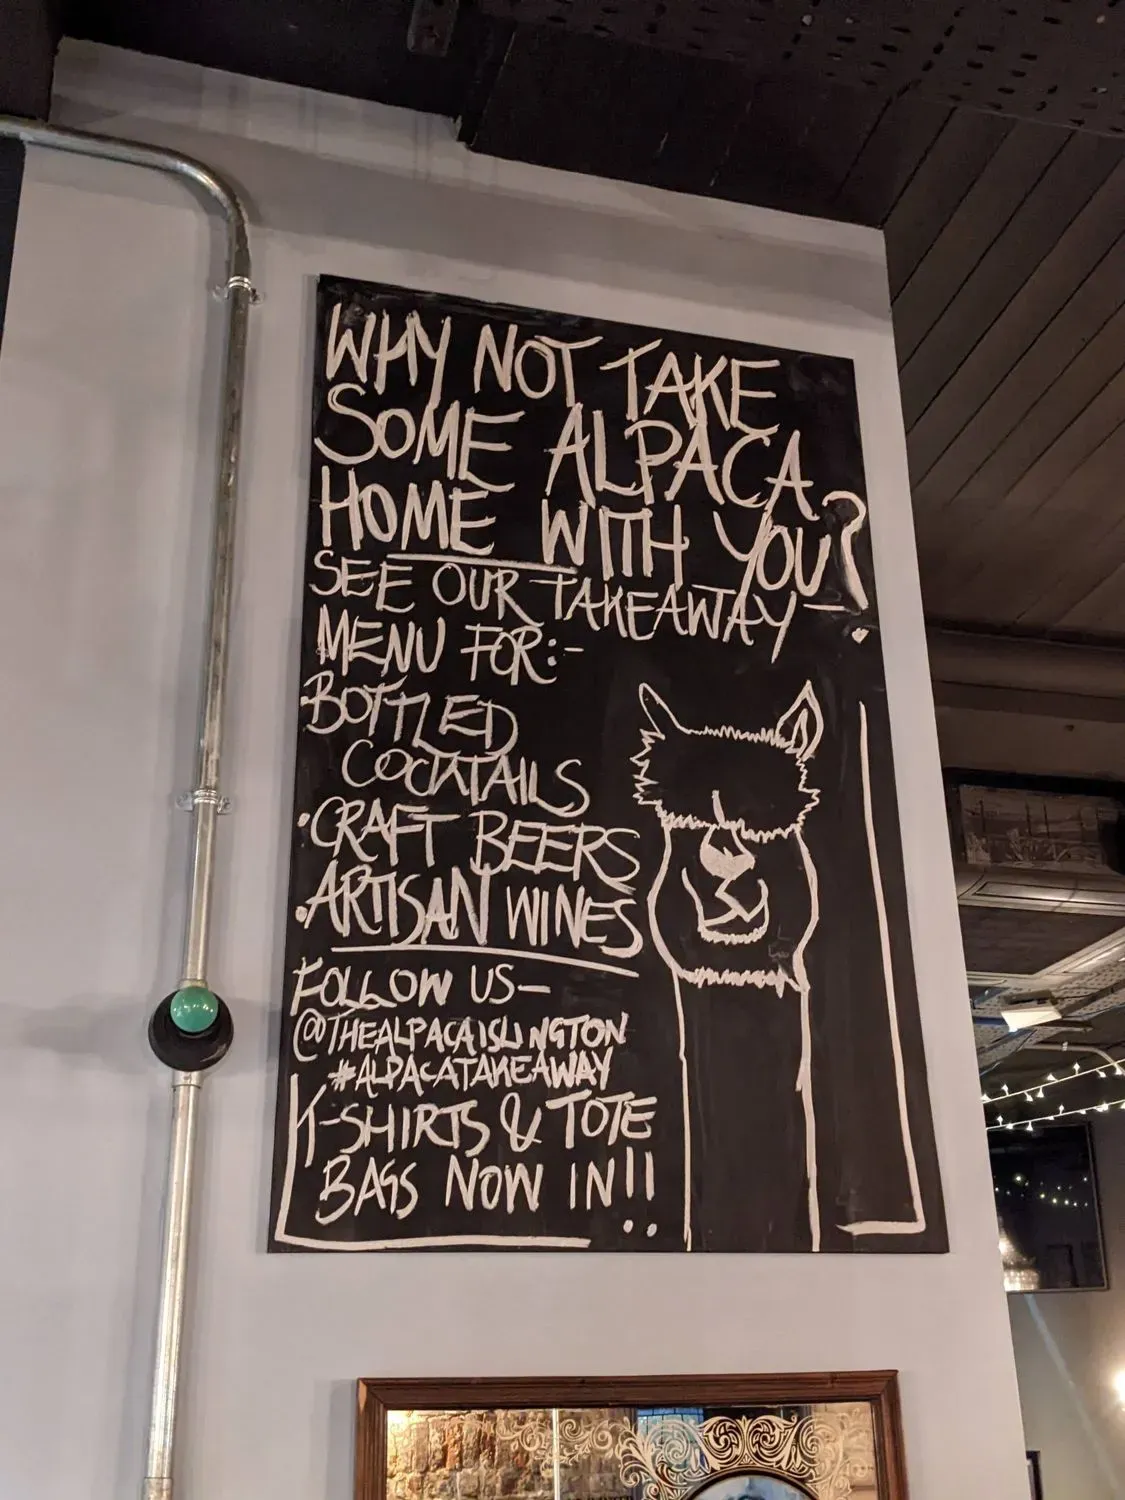 WHY NOT TAKE
SOME ALPACA
HOME WITH YOU?
SEE OUR TAKEAWAY-
MENU FOR:-
·BOTTLED
COCKTAILS
·CRAFT BEERS
·ARTISAN WINES
FOLLOW US-
@THEALPACAISLINGTON
#ALPACATAKEAWAY
T-SHIRTS & TOTE
BAGS NOW IN!!